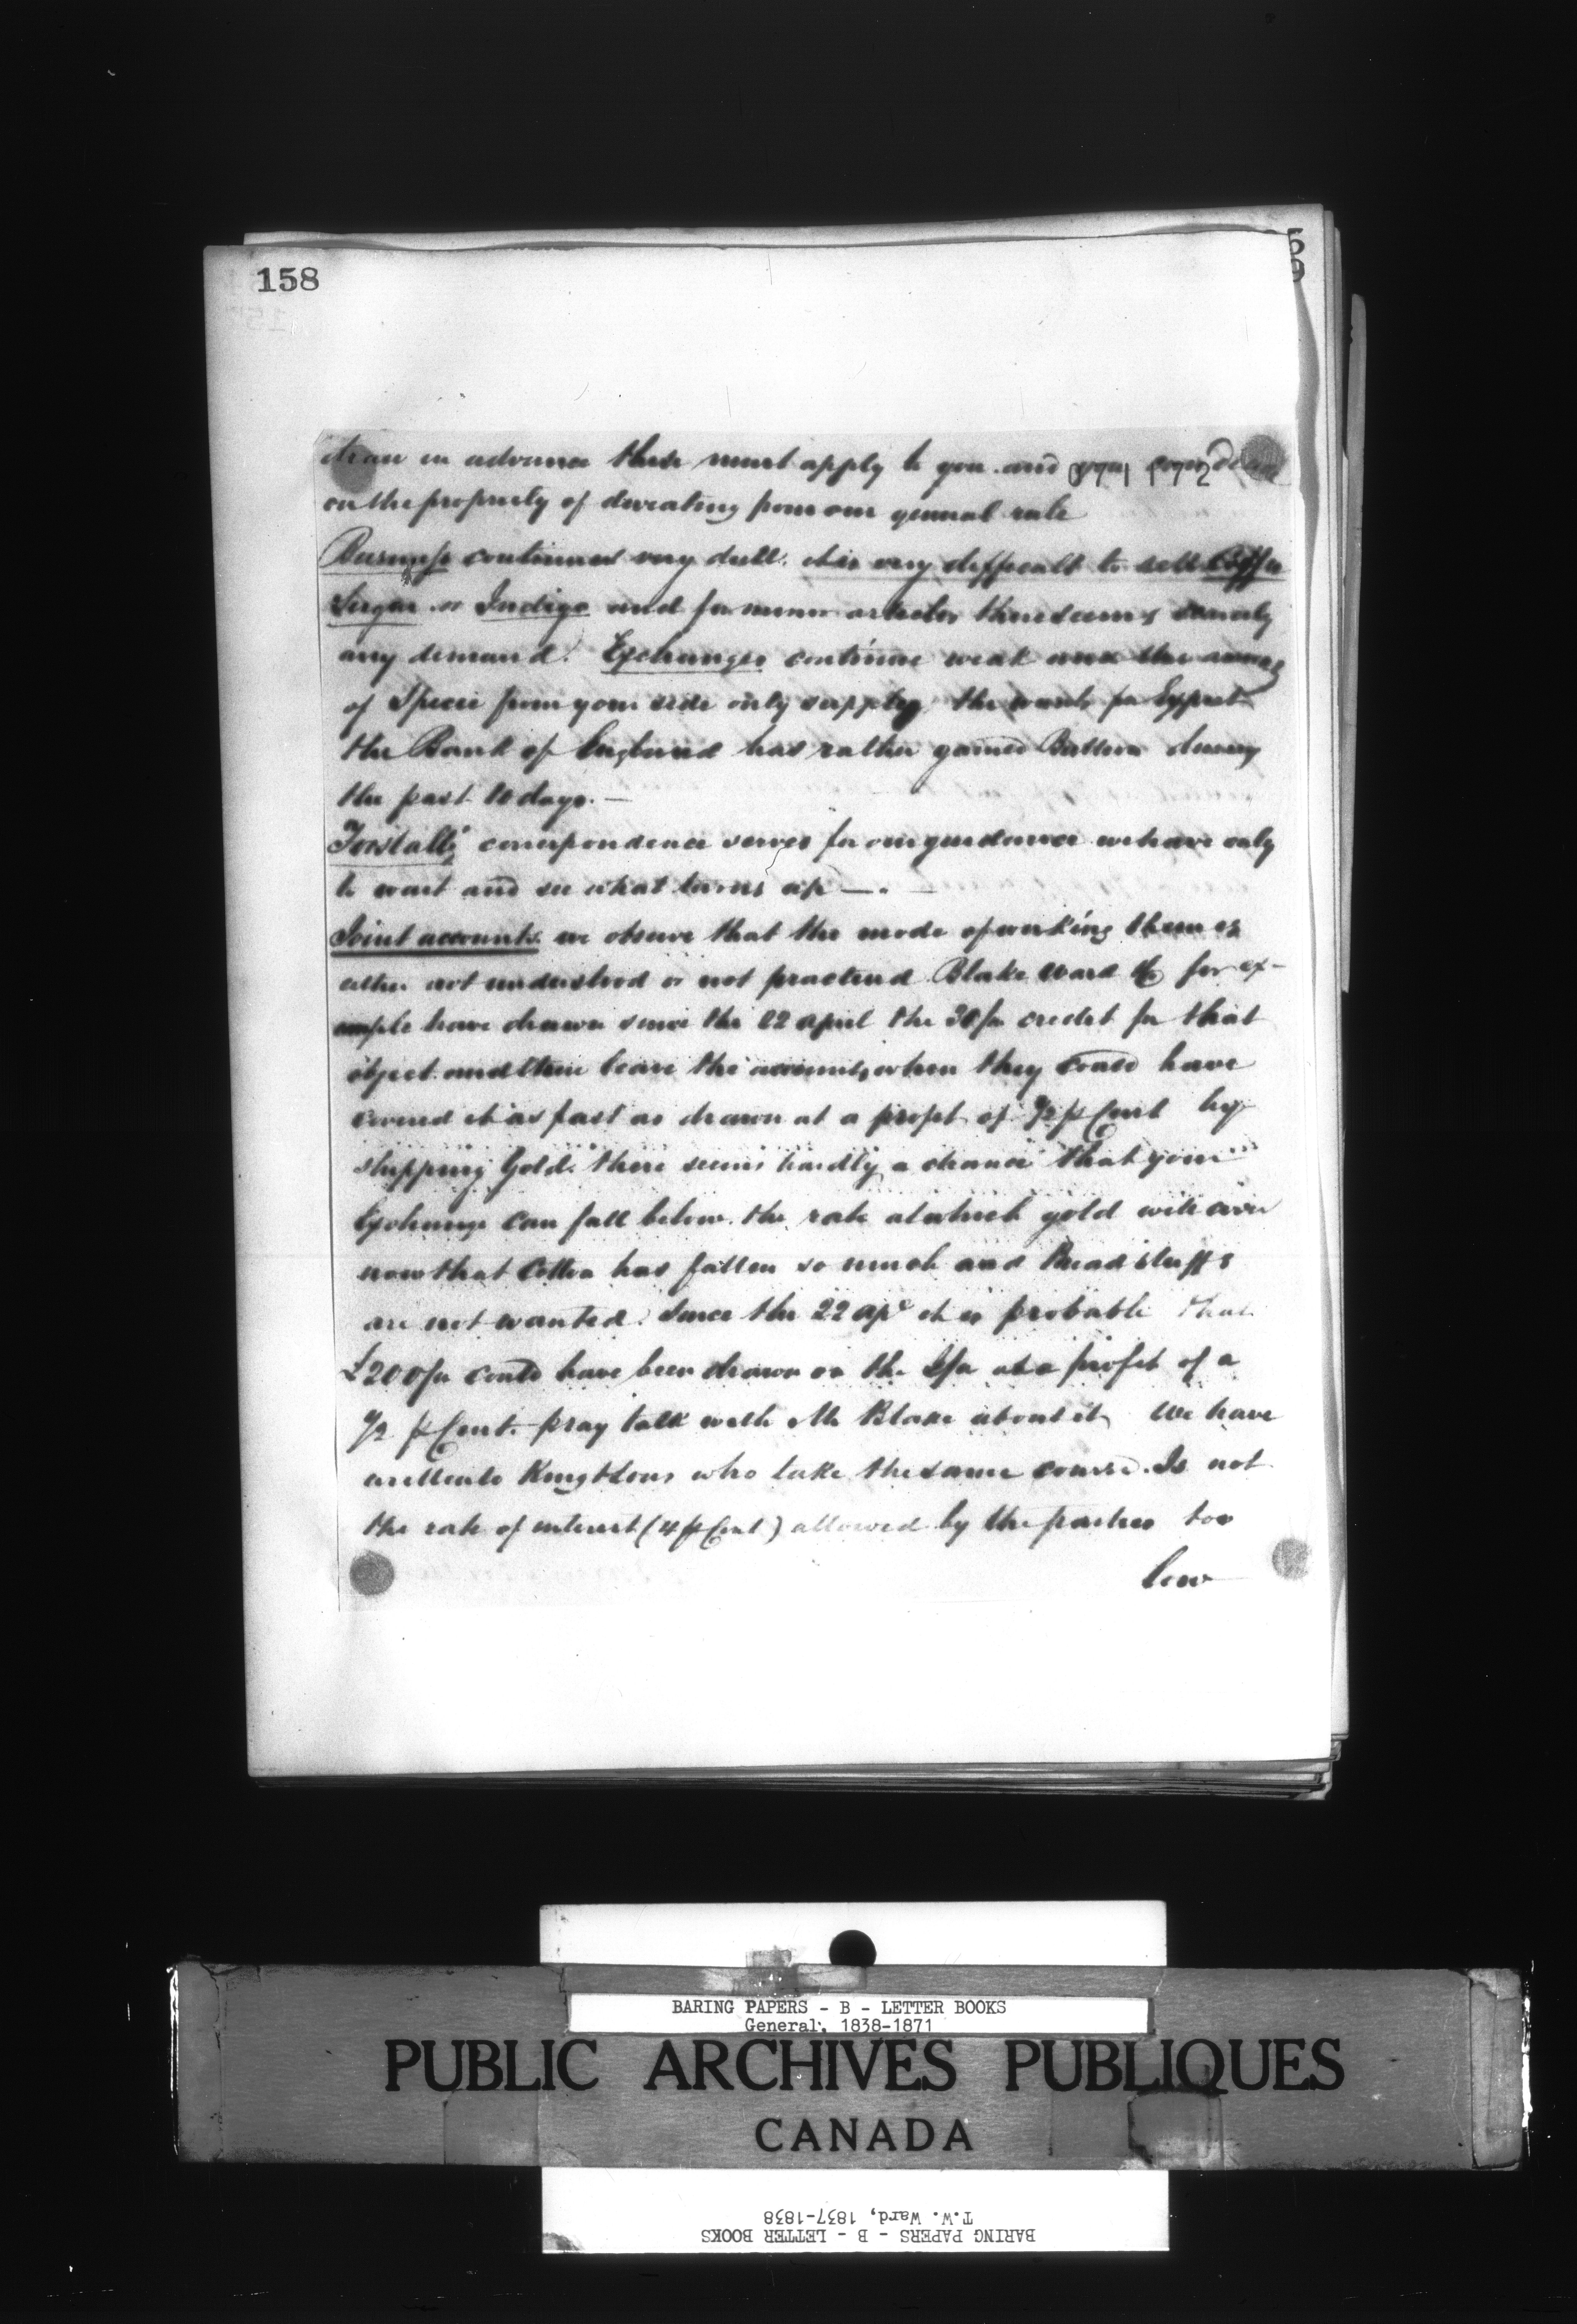 158
draw in advance these must apply to you and you can decide
071 172
on the propriety of deviating from our general rule
Business continues very dull. it is very difficult to sell Coffee
Sugar or Indigo and for minor articles there seems scarcely
any demand. Exchanges continue weak and the
of Specie from your side only supplys the wants for Export
the Bank of England has rather gained Bullion during
the past 10 days. —
Forstall's correspondence serves for our guidance we have only
to wait and see what turns up —. —
Joint accounts. we observe that the mode of working them is
either not understood or not practised Blake Ward & Co for ex-
ample have drawn since the 22 april the 30/m credit for that
object and then leave the account, when they could have
covered it as fast as drawn at a profit of 1/2 p Cent by
shipping Gold. there seems hardly a chance that your
Exchange can fall below the rate at which gold will cover
now that Cotton has fallen so much and Bread stuffs
are not wanted. Since the 22 apl it is probable that
£200/m could have been drawn on the J/a at a profit of a
1/2 p Cent. pray talk with Mr Blake about it. We have
written to Kings & Sons who take the same course. Is not
the rate of interest (4 p Cent) allowed by the parties too
low
BARING PAPERS - B - LETTER BOOKS
General, 1838-1871
PUBLIC ARCHIVES PUBLIQUES
CANADA
T.W. Ward, 1837-1838
BARING PAPERS - B - LETTER BOOKS